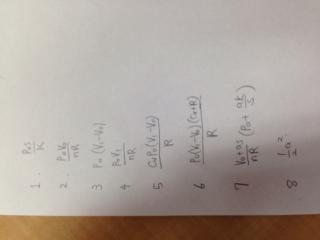 1. P₀S/K
2. P₀V₀/nR
3 P₀(V₁-V₀)
4 P₀V₁/nR
5 CvP₀(V₁-V₀)/R
6 P₀(V₁-V₀)(Cv+R)/R
7 V₀+as/nR (P₀+ak/S)
8 1/2 a²